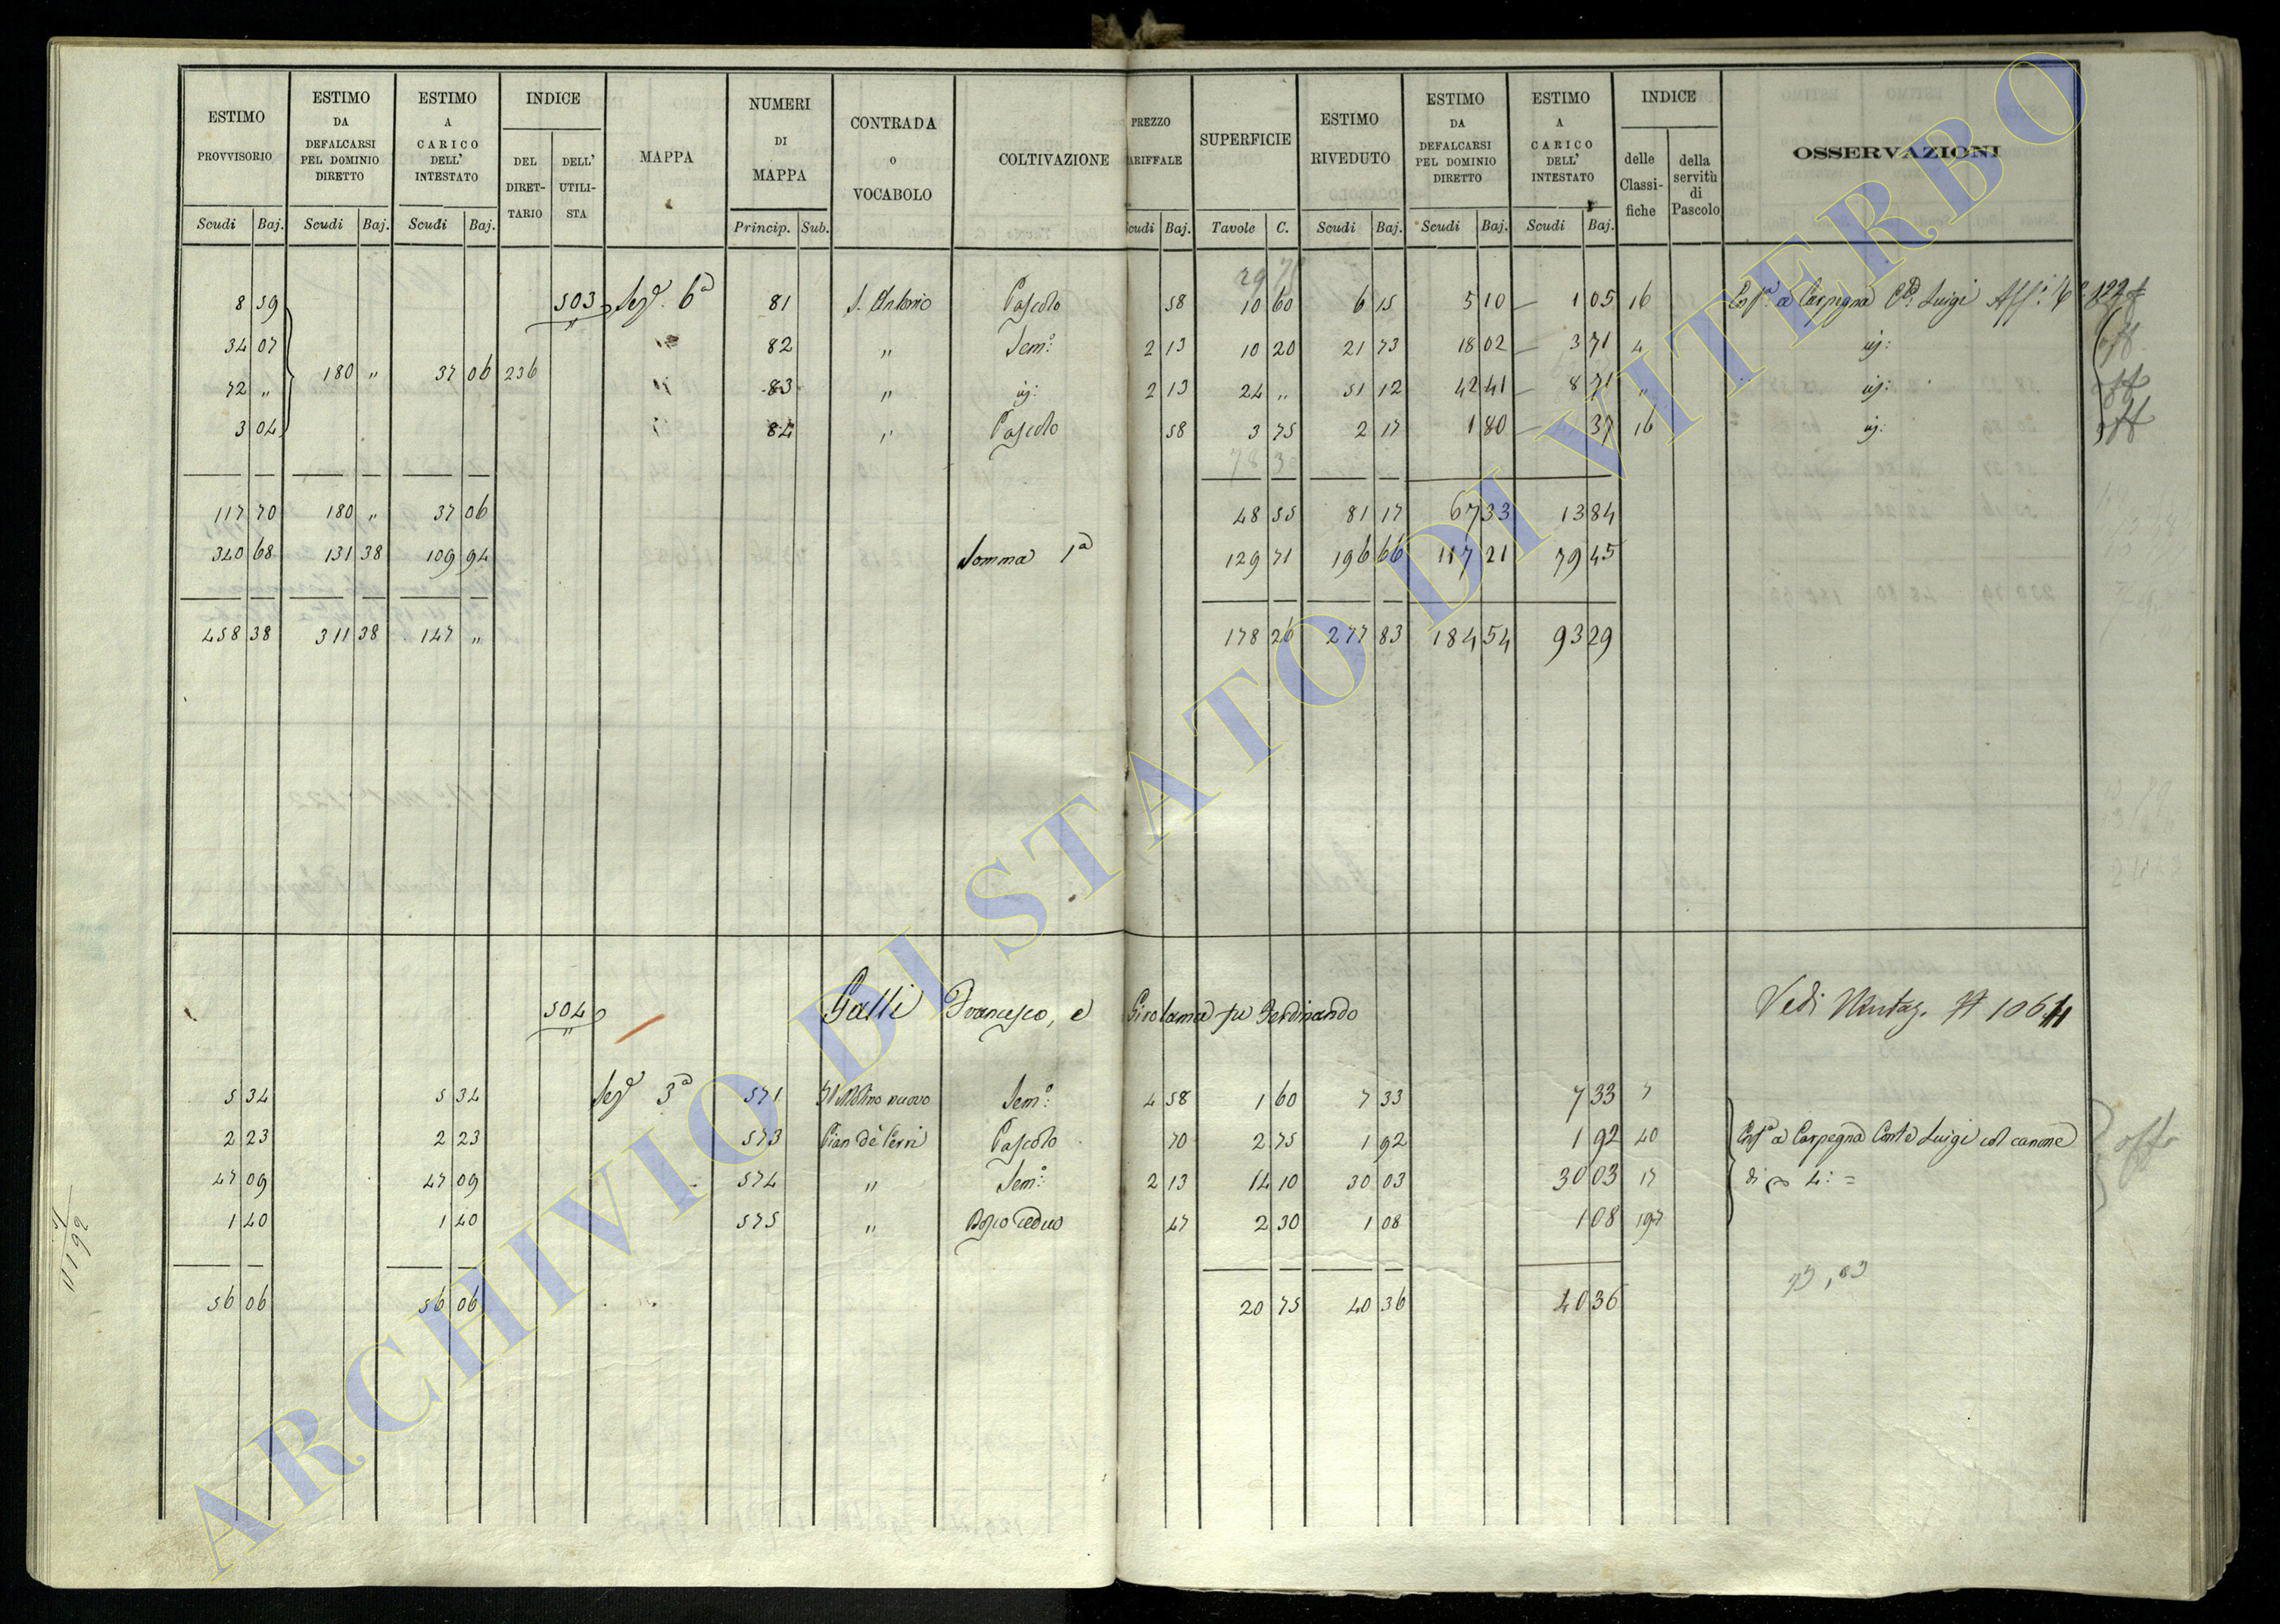 ESTIMO PROVVISORIO | ESTIMO DA DEFALCARSI PEL DOMINIO DIRETTO | ESTIMO A CARICO DELL' INTESTATO | INDICE DEL DIRET-TARIO | DELL' UTILI-STA | MAPPA | NUMERI DI MAPPA | CONTRADA o VOCABOLO | COLTIVAZIONE | PREZZO ARIFFALE | SUPERFICIE | ESTIMO RIVEDUTO | ESTIMO DA DEFALCARSI PEL DOMINIO DIRETTO | ESTIMO A CARICO DELL' INTESTATO | INDICE delle Classi-fiche | della servitù di Pascolo | OSSERVAZIONI
Scudi Baj. | Scudi Baj. | Scudi Baj. | Princip. Sub. | cudi Baj. | Tavole C. | Scudi Baj. | Scudi Baj. | Scudi Baj.
29 75
8 59 | 503 | Segª. 6ª | 81 | S. Antonio | Pascolo | 58 | 10 60 | 6 15 | 5 10 | 1 05 | 16 | a Carpegna Luigi 122
34 07 | 82 | " | Sem: | 2 13 | 10 20 | 21 73 | 18 02 | 3 71 | 4 | off
180 " | 37 06 | 236
72 " | 83 | " | 2 13 | 24 " | 51 12 | 42 41 | 8 71 | " | off
3 04 | 84 | " | Pascolo | 58 | 3 75 | 2 17 | 1 80 | 37 | 16 | off
117 70 | 180 " | 37 06 | 48 55 | 81 17 | 67 33 | 13 84
340 68 | 131 38 | 109 94 | Somma 1ª | 129 71 | 196 66 | 117 21 | 79 45
458 38 | 311 38 | 147 " | 178 26 | 277 83 | 184 54 | 93 29
504 | Galli Francesco, e Girolama fu Ferdinando | Vedi
5 34 | 5 34 | Segª 3ª | 571 | Il Molino nuovo | Sem: | 4 58 | 1 60 | 7 33 | 7 33 | 7
2 23 | 2 23 | 573 | Pian de' Cerri | Pascolo | 70 | 2 75 | 1 92 | 1 92 | 40 | a Carpegna Conte Luigi col canone | off
47 09 | 47 09 | 574 | " | Sem: | 2 13 | 14 10 | 30 03 | 30 03 | 17 | di 4: =
1 40 | 1 40 | 575 | " | Bosco ceduo | 47 | 2 30 | 1 08 | 1 08 | 197
56 06 | 56 06 | 20 75 | 40 36 | 40 36
1192
ARCHIVIO DI STATO DI VITERBO